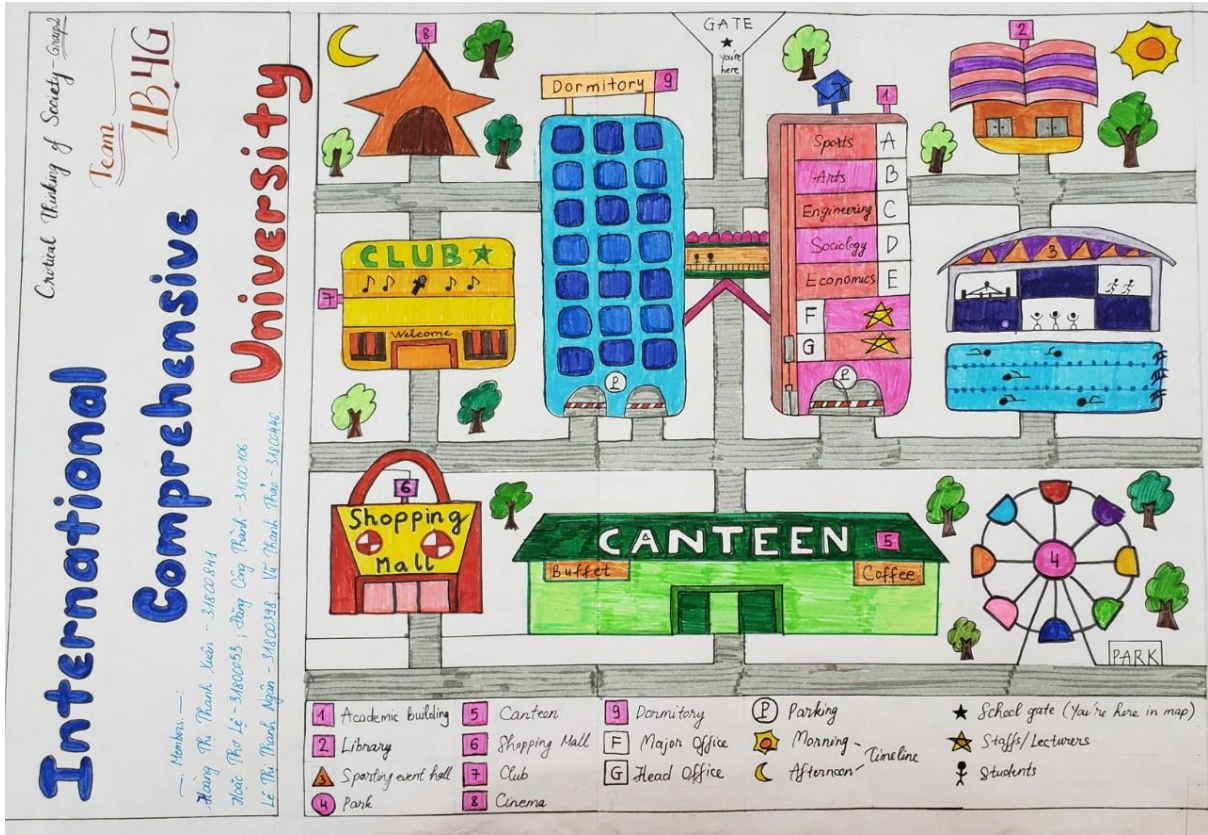 Critical Thinking of Society - Group2
Team
1B4G
International
Comprehensive
University
Members
Hoàng Thị Thanh Xuân - 31800841
Hoắc Thơ Lê - 31800053 ; Đặng Công Thành - 31800106
Lê Thị Thanh Ngân - 31800398 ; Vũ Thanh Thảo - 31800446
GATE
you're
here
8
2
Dormitory 9
1
Sports A
Arts B
Engineering C
Sociology D
Economics E
F
G
P
P
CLUB
7
Welcome
3
6
Shopping
Mall
CANTEEN 5
Buffet
Coffee
4
PARK
1 Academic building
2 Library
3 Sporting event hall
4 Park
5 Canteen
6 Shopping Mall
7 Club
8 Cinema
9 Dormitory
F Major Office
G Head Office
P Parking
Morning
Afternoon
Timeline
School gate (You're here in map)
Staffs/Lecturers
Students